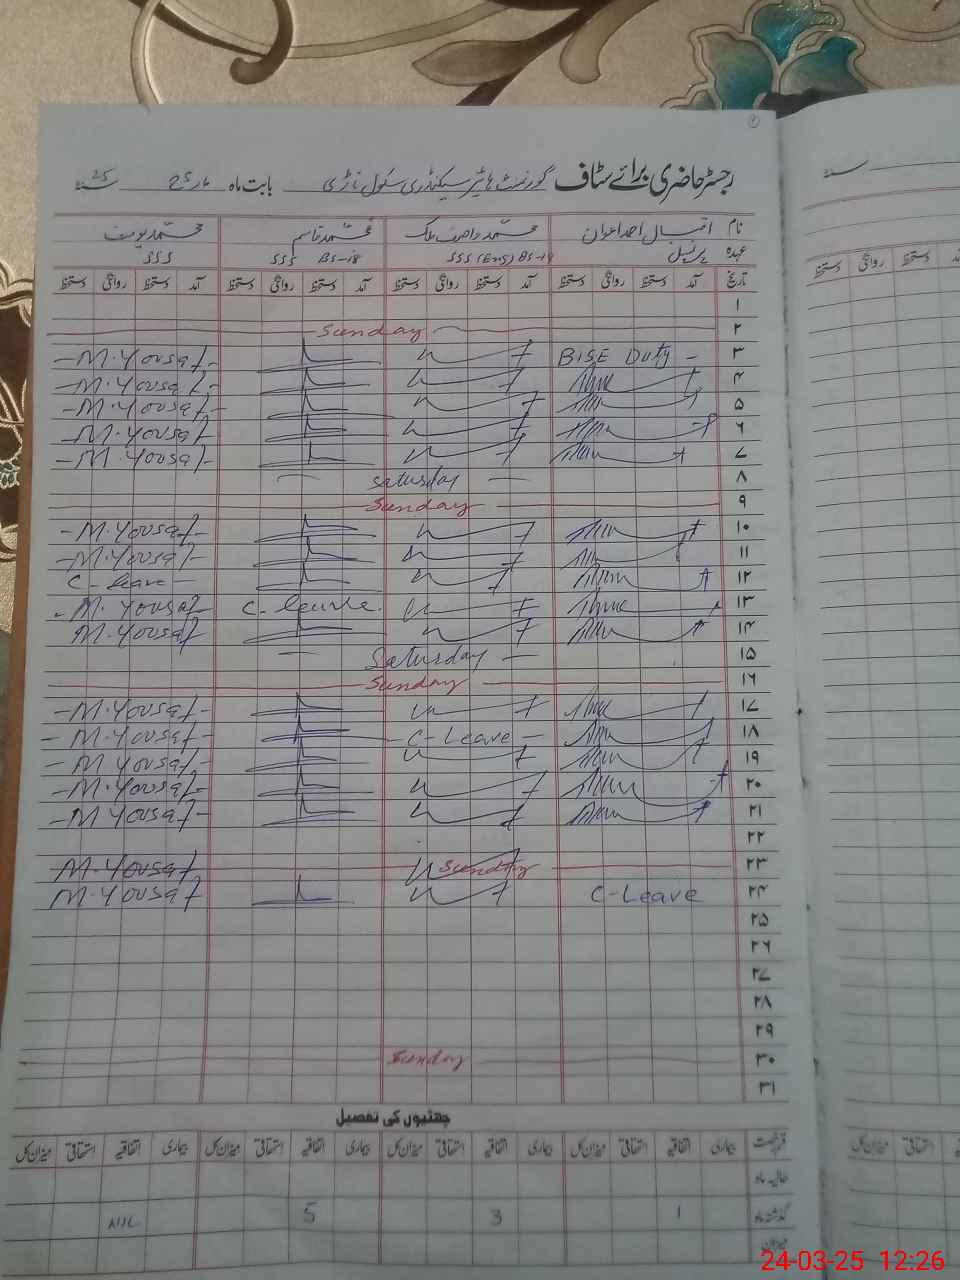 رجسٹر حاضری برائے سٹاف گورنمنٹ ہائیر سیکنڈری سکول ناڑی بابت ماہ مارچ سنہ 25
نام اقبال احمد اعوان محمد واصف ملک محمد قاسم محمد یوسف
عہدہ پرنسپل SSS (Eng) BS-19 SSS BS-18 SSS
تاریخ آمد دستخط روانگی دستخط آمد دستخط روانگی دستخط آمد دستخط روانگی دستخط آمد دستخط روانگی دستخط
۱
۲ Sunday
۳ BISE Duty - -M.Yousaf-
۴ -M.Yousaf-
۵ -M.Yousaf-
۶ -M.Yousaf-
۷ -M.Yousaf-
۸ Saturday
۹ Sunday
۱۰ -M.Yousaf-
۱۱ -M.Yousaf-
۱۲ C-leave-
۱۳ C-leave. -M.Yousaf-
۱۴ M.Yousaf
۱۵ Saturday
۱۶ Sunday
۱۷ -M.Yousaf-
۱۸ -C-Leave- -M.Yousaf-
۱۹ -M.Yousaf-
۲۰ -M.Yousaf-
۲۱ -M.Yousaf-
۲۲
۲۳ Sunday M.Yousaf
۲۴ C-Leave M.Yousaf
۲۵
۲۶
۲۷
۲۸
۲۹
۳۰ Sunday
۳۱
چھٹیوں کی تفصیل
قسم رخصت بیماری اتفاقیہ استحقاقی میزان کل بیماری اتفاقیہ استحقاقی میزان کل بیماری اتفاقیہ استحقاقی میزان کل بیماری اتفاقیہ استحقاقی میزان کل
حالیہ ماہ
گذشتہ ماہ 1 3 5 Nil
میزان
24-03-25 12:26